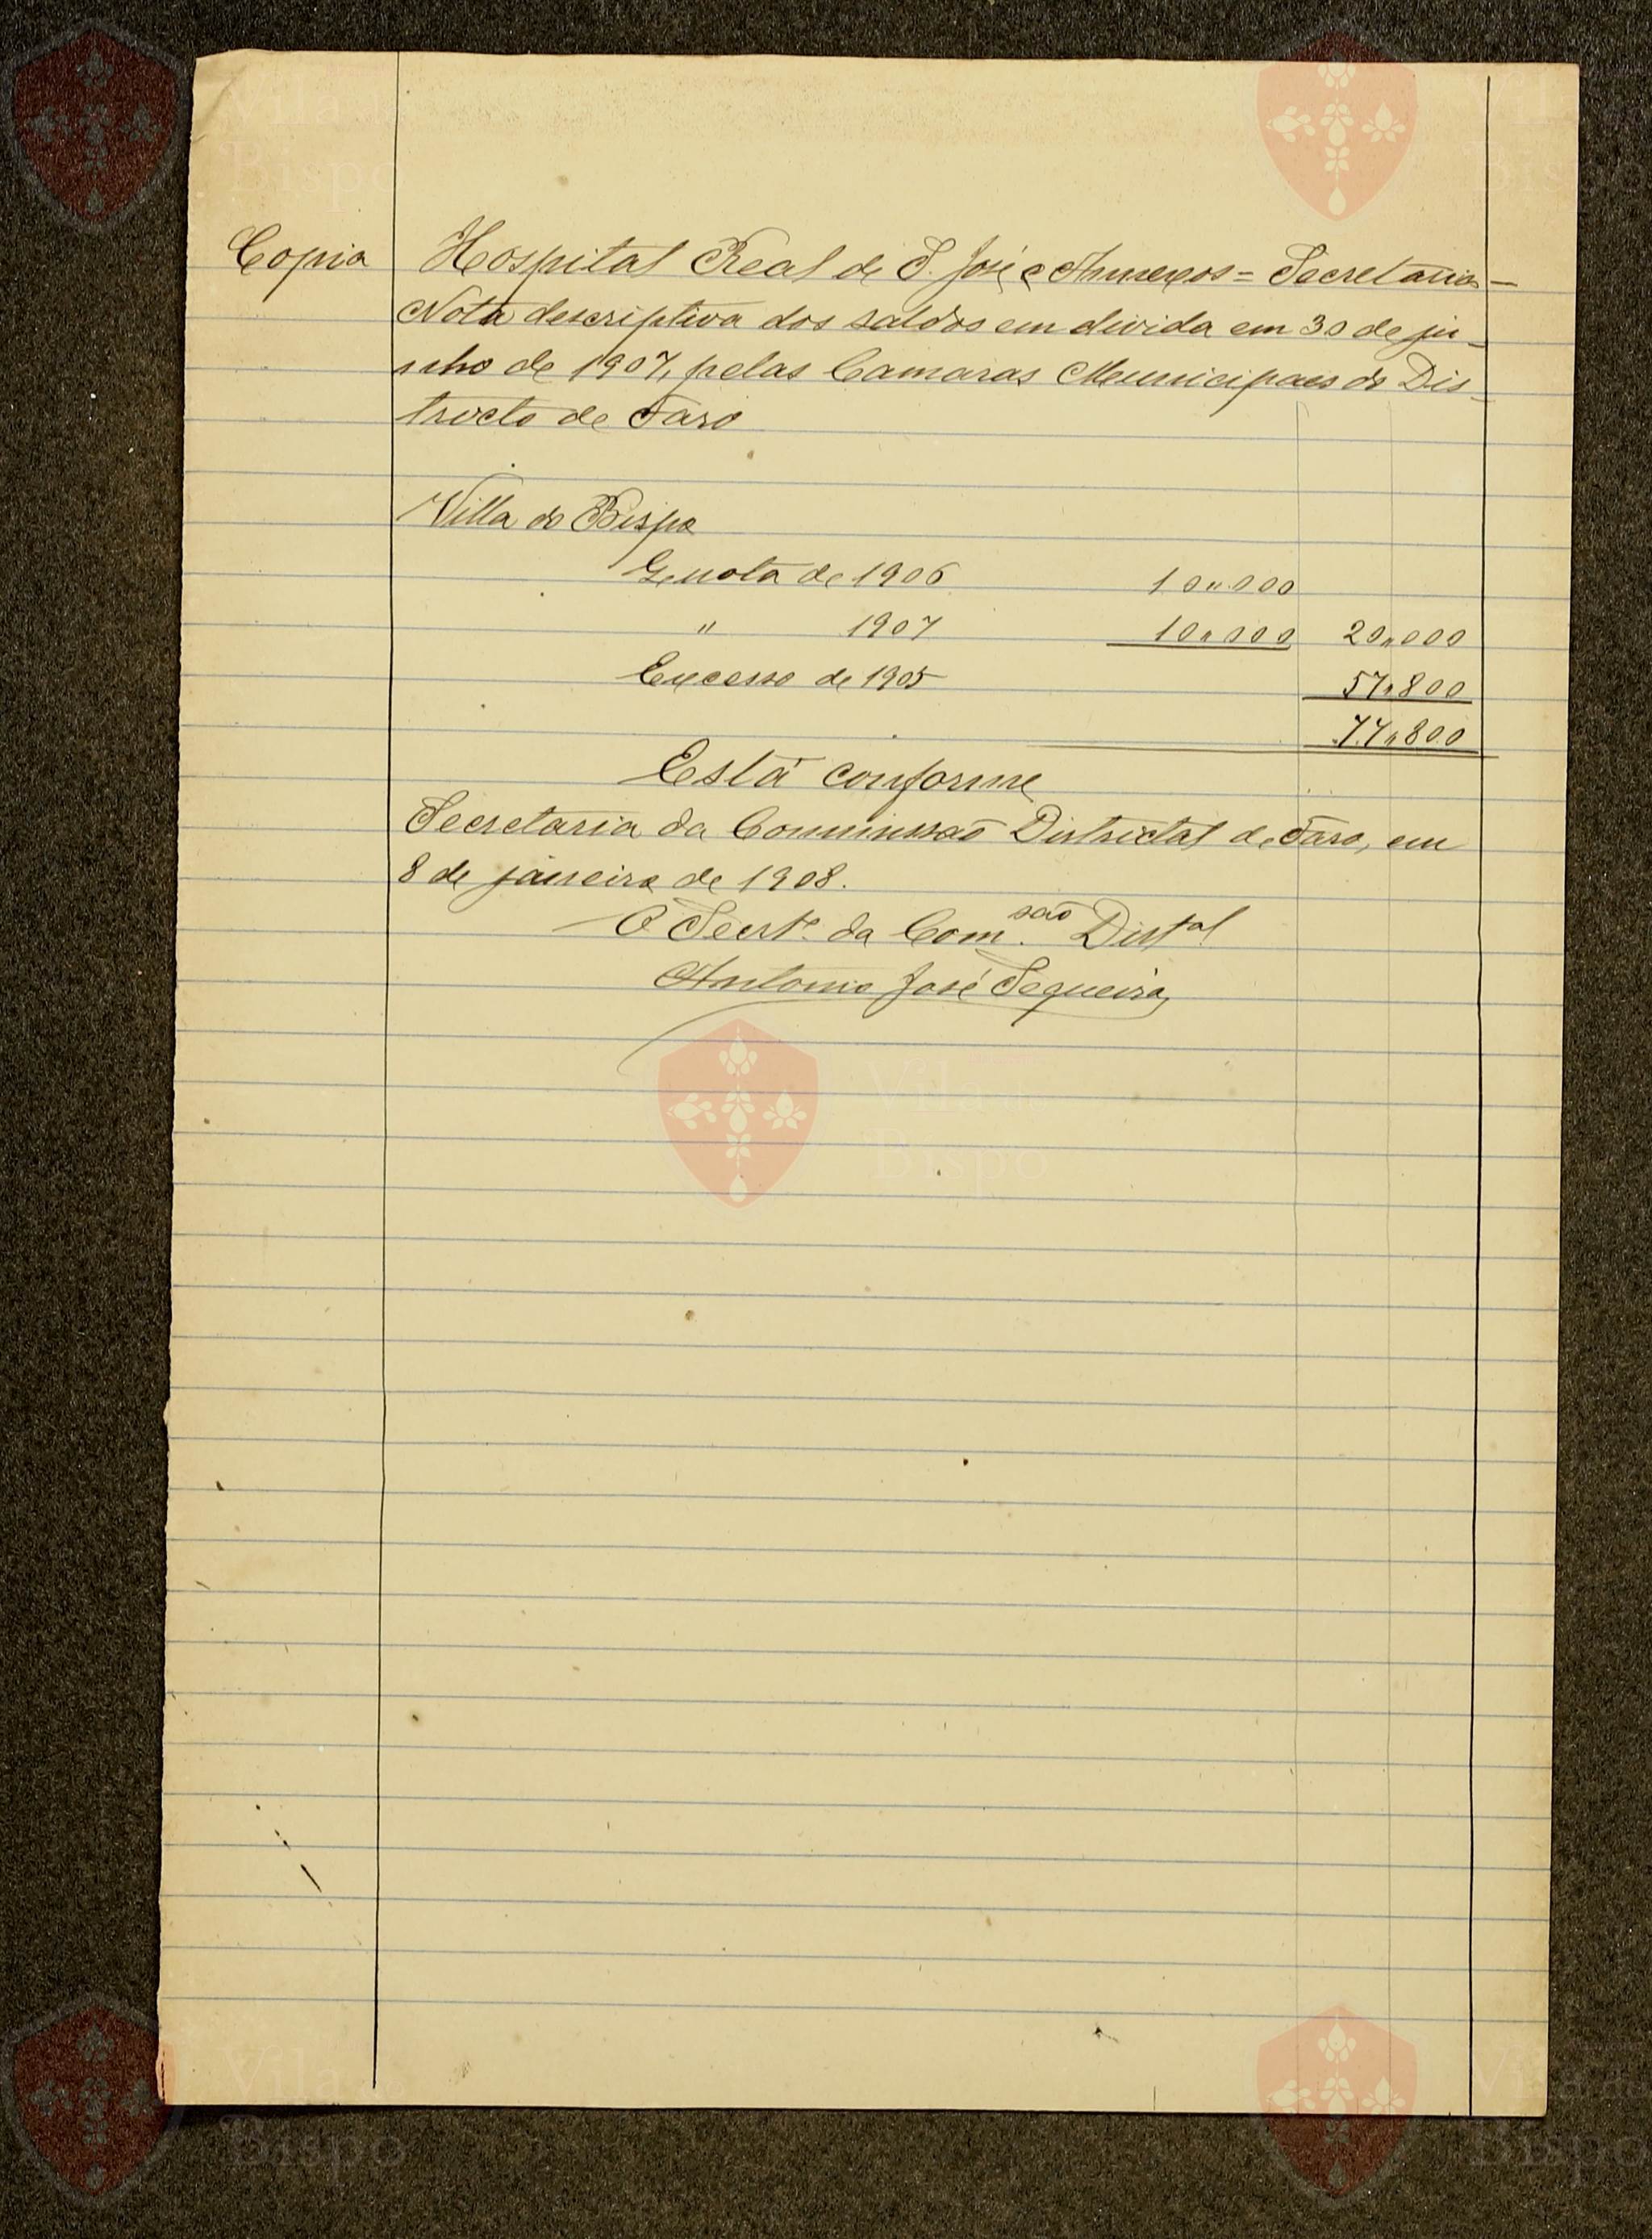 Copia Hospital Real de S. José e Annexos = Secretaria —
Nota descriptiva dos saldos em divida em 30 de ju-
nho de 1907, pelas Camaras Municipaes do Dis-
tricto de Faro
Villa do Bispo
Quota de 1906 10"000
" 1907 10"000 20"000
Excesso de 1905 57"800
77"800
Está conforme
Secretaria da Commissão Districtal de Faro, em
8 de janeiro de 1908.
O Secrt.º da Com.são Distal
Antonio José Sequeira
Vila do
Bispo